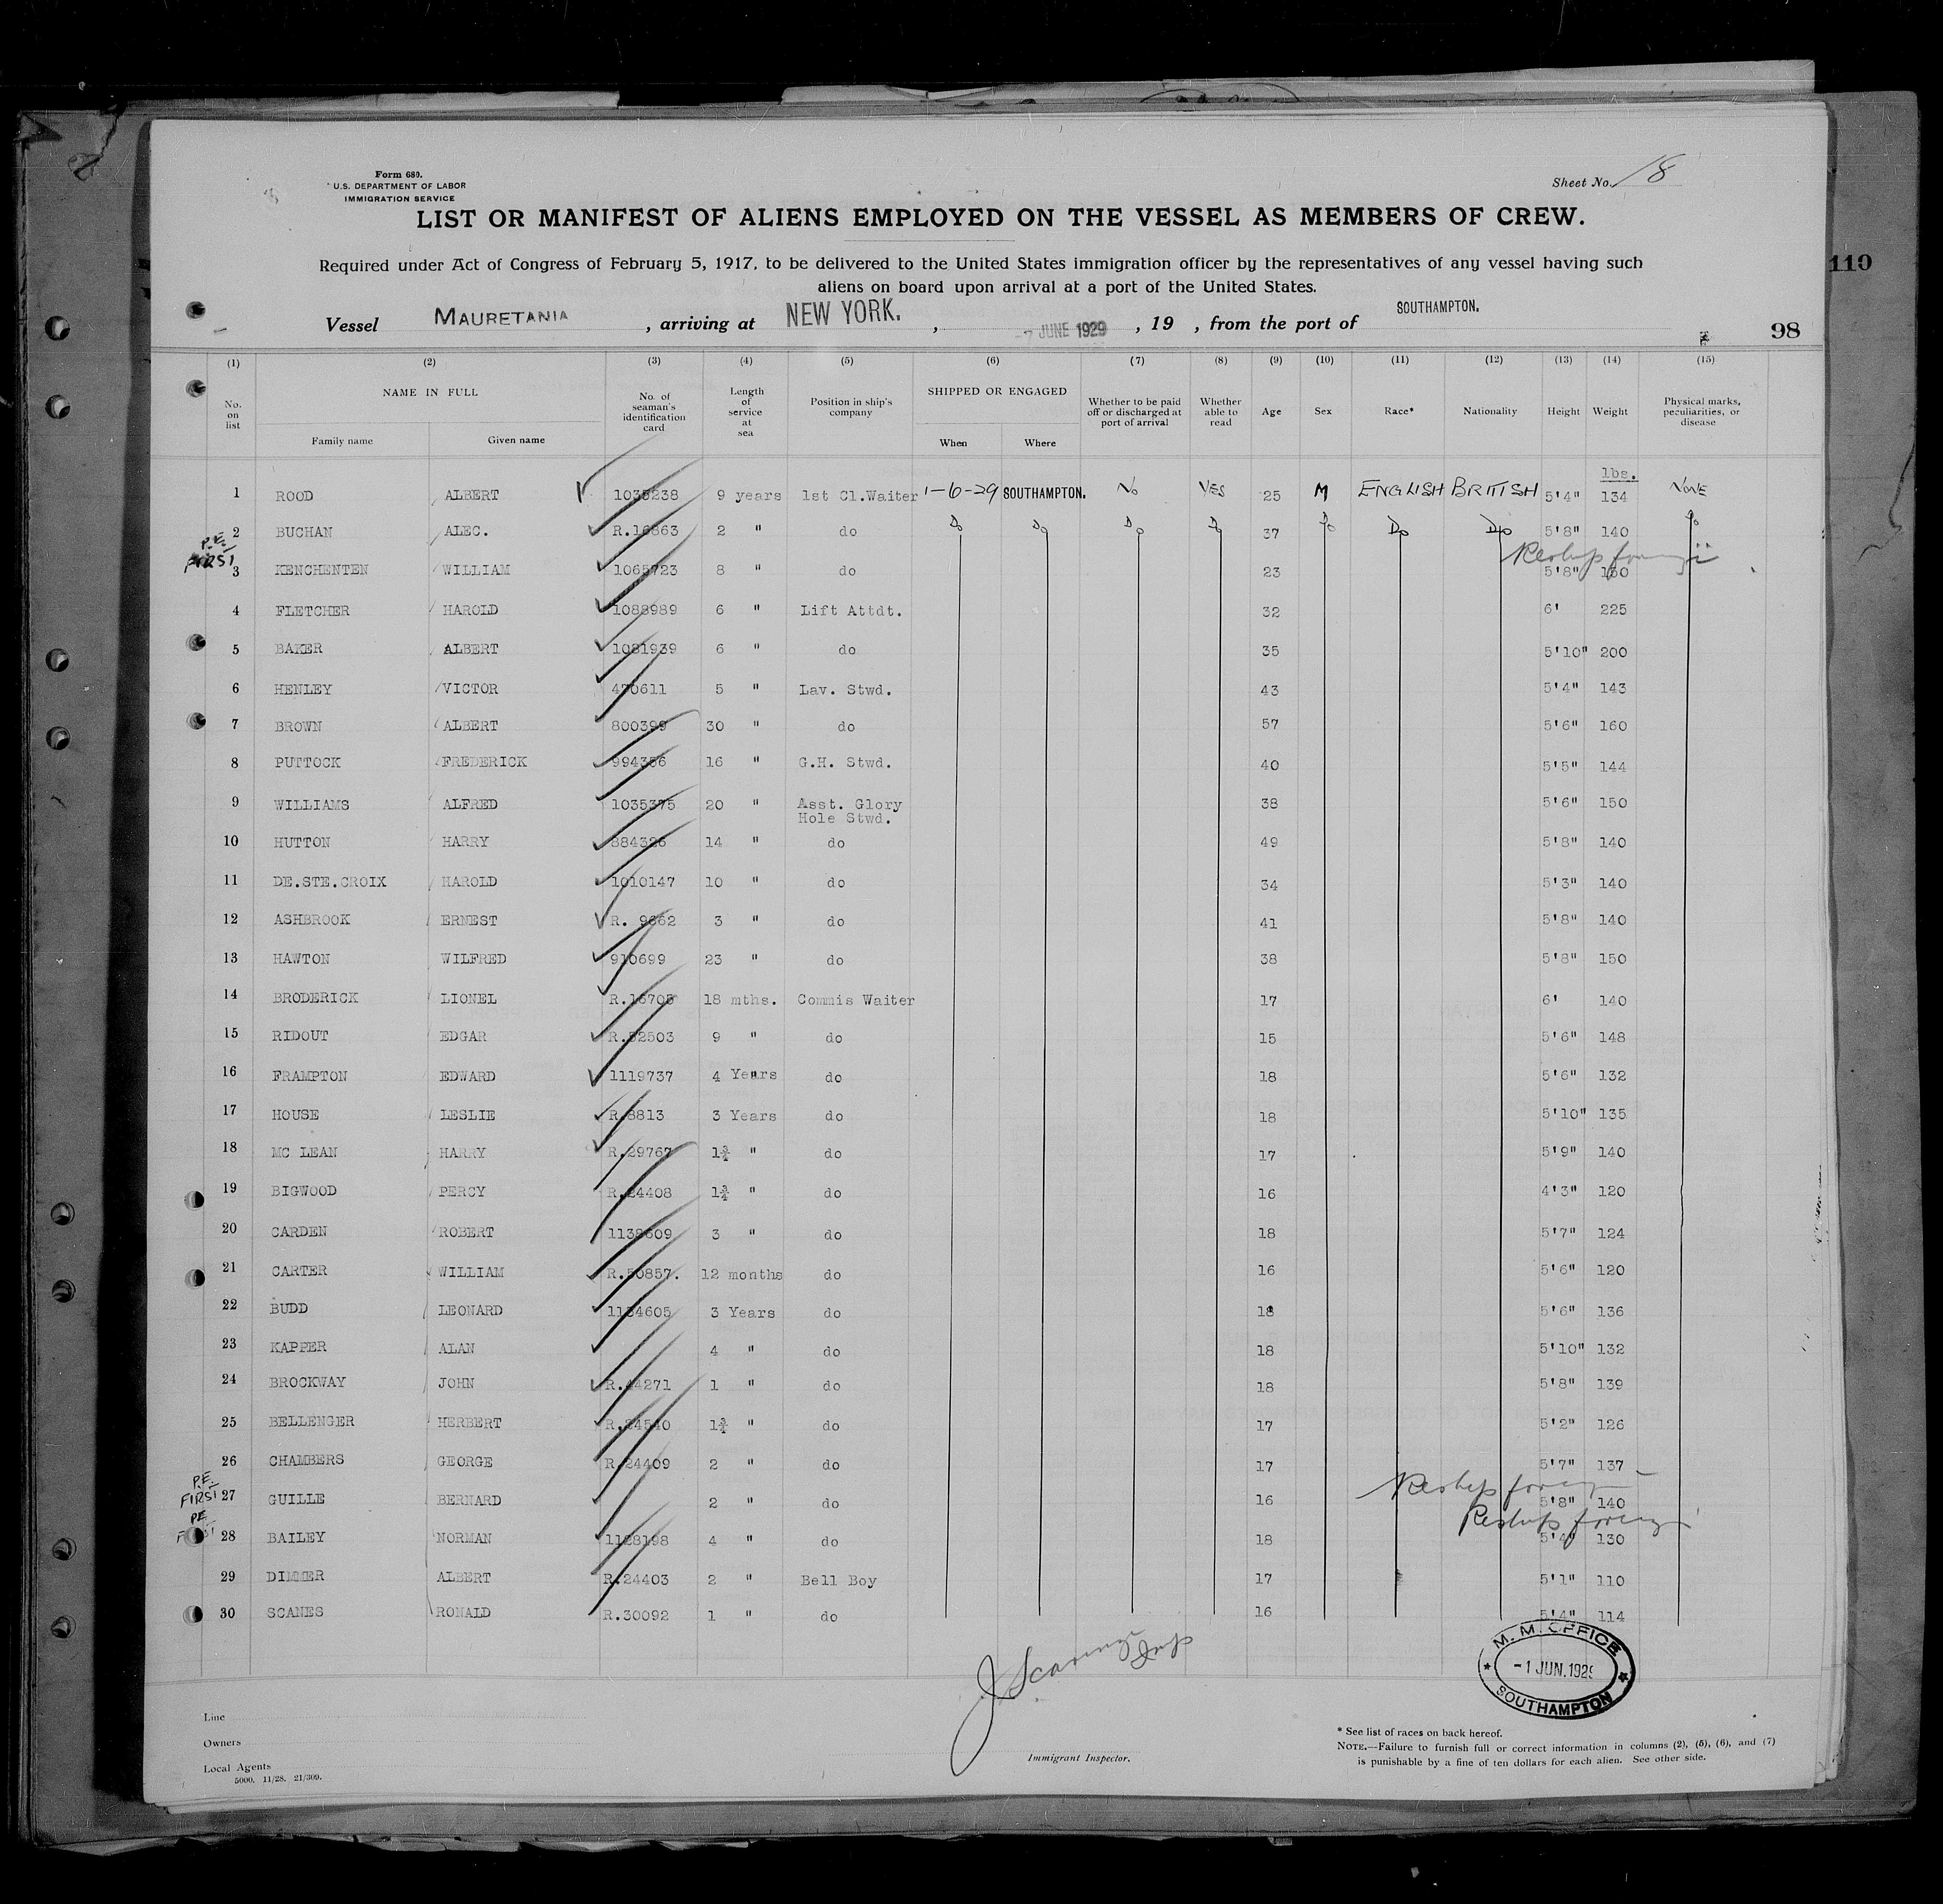 Form 680.
U.S. DEPARTMENT OF LABOR
IMMIGRATION SERVICE
Sheet No. 18
LIST OR MANIFEST OF ALIENS EMPLOYED ON THE VESSEL AS MEMBERS OF CREW.
Required under Act of Congress of February 5, 1917, to be delivered to the United States immigration officer by the representatives of any vessel having such
aliens on board upon arrival at a port of the United States.
110
Vessel MAURETANIA, arriving at NEW YORK., -7 JUNE 1929, 19 , from the port of SOUTHAMPTON.
98
(1) (2) (3) (4) (5) (6) (7) (8) (9) (10) (11) (12) (13) (14) (15)
No. on list NAME IN FULL Family name Given name No. of seaman's identification card Length of service at sea Position in ship's company SHIPPED OR ENGAGED When Where Whether to be paid off or discharged at port of arrival Whether able to read Age Sex Race* Nationality Height Weight Physical marks, peculiarities, or disease
lbs.
1 ROOD ALBERT 1035238 9 years 1st Cl.Waiter 1-6-29 SOUTHAMPTON. No YES 25 M ENGLISH BRITISH 5'4" 134 NONE
2 BUCHAN ALEC. R.16863 2 " do Do Do Do Do 37 Do Do Do 5'8" 140 Do
P.E. FIRST
Reship foreign
3 KENCHENTEN WILLIAM 1065723 8 " do 23 5'8" 150
4 FLETCHER HAROLD 1088989 6 " Lift Attdt. 32 6' 225
5 BAKER ALBERT 1081939 6 " do 35 5'10" 200
6 HENLEY VICTOR 470611 5 " Lav. Stwd. 43 5'4" 143
7 BROWN ALBERT 800399 30 " do 57 5'6" 160
8 PUTTOCK FREDERICK 994356 16 " G.H. Stwd. 40 5'5" 144
9 WILLIAMS ALFRED 1035375 20 " Asst. Glory Hole Stwd. 38 5'6" 150
10 HUTTON HARRY 884326 14 " do 49 5'8" 140
11 DE.STE.CROIX HAROLD 1010147 10 " do 34 5'3" 140
12 ASHBROOK ERNEST R. 9662 3 " do 41 5'8" 140
13 HAWTON WILFRED 910699 23 " do 38 5'8" 150
14 BRODERICK LIONEL R.16705 18 mths. Commis Waiter 17 6' 140
15 RIDOUT EDGAR R.32503 9 " do 15 5'6" 148
16 FRAMPTON EDWARD 1119737 4 Years do 18 5'6" 132
17 HOUSE LESLIE R.8813 3 Years do 18 5'10" 135
18 MC LEAN HARRY R.29767 1¾ " do 17 5'9" 140
19 BIGWOOD PERCY R.24408 1¾ " do 16 4'3" 120
20 CARDEN ROBERT 1138609 3 " do 18 5'7" 124
21 CARTER WILLIAM R.30857. 12 months do 16 5'6" 120
22 BUDD LEONARD 1134605 3 Years do 18 5'6" 136
23 KAPPER ALAN 4 " do 18 5'10" 132
24 BROCKWAY JOHN R.44271 1 " do 18 5'8" 139
25 BELLENGER HERBERT R.24540 1¾ " do 17 5'2" 126
26 CHAMBERS GEORGE R.24409 2 " do 17 5'7" 137
P.E. FIRST
Reship foreign
27 GUILLE BERNARD 2 " do 16 5'8" 140
P.E.
Reship foreign
28 BAILEY NORMAN 1128198 4 " do 18 5'4" 130
29 DIMMER ALBERT R.24403 2 " Bell Boy 17 5'1" 110
30 SCANES RONALD R.30092 1 " do 16 5'4" 114
M. M. OFFICE
-1 JUN.1929
SOUTHAMPTON
Line
Owners
Local Agents
5000. 11/28. 21/309.
Immigrant Inspector.
* See list of races on back hereof.
NOTE.—Failure to furnish full or correct information in columns (2), (5), (6), and (7)
is punishable by a fine of ten dollars for each alien. See other side.